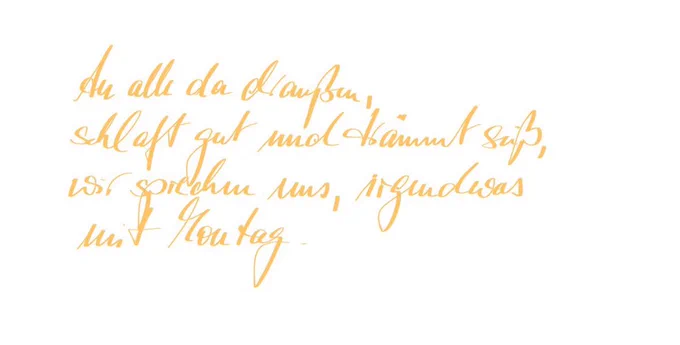 An alle da draußen,
schlaft gut und träumt süß,
wir sprechen uns, irgendwas
mit Montag.